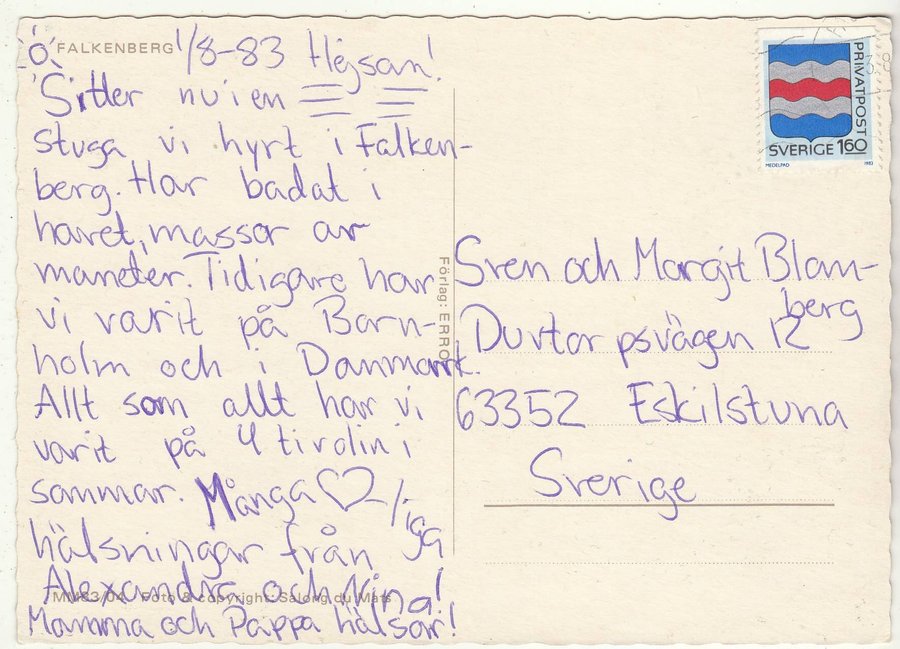 FALKENBERG
1/8-83 Hejsan!
Sitter nu i en
stuga vi hyrt i Falken-
berg. Har badat i
havet, massor av
maneter. Tidigare har
vi varit på Born-
holm och i Danmark.
Allt som allt har vi
varit på 4 tivolin i
sommar. Många ♡
/iga
hälsningar från
Alexandra och Nina!
Mamma och Pappa hälsar!
MM83/04 Foto & copyright: Salong du Mats
Förlag: ERRO
PRIVATPOST
SVERIGE 160
MEDELPAD 1983
Sven och Margit Blom-
berg
Duvtorpsvägen 12
63352 Eskilstuna
Sverige